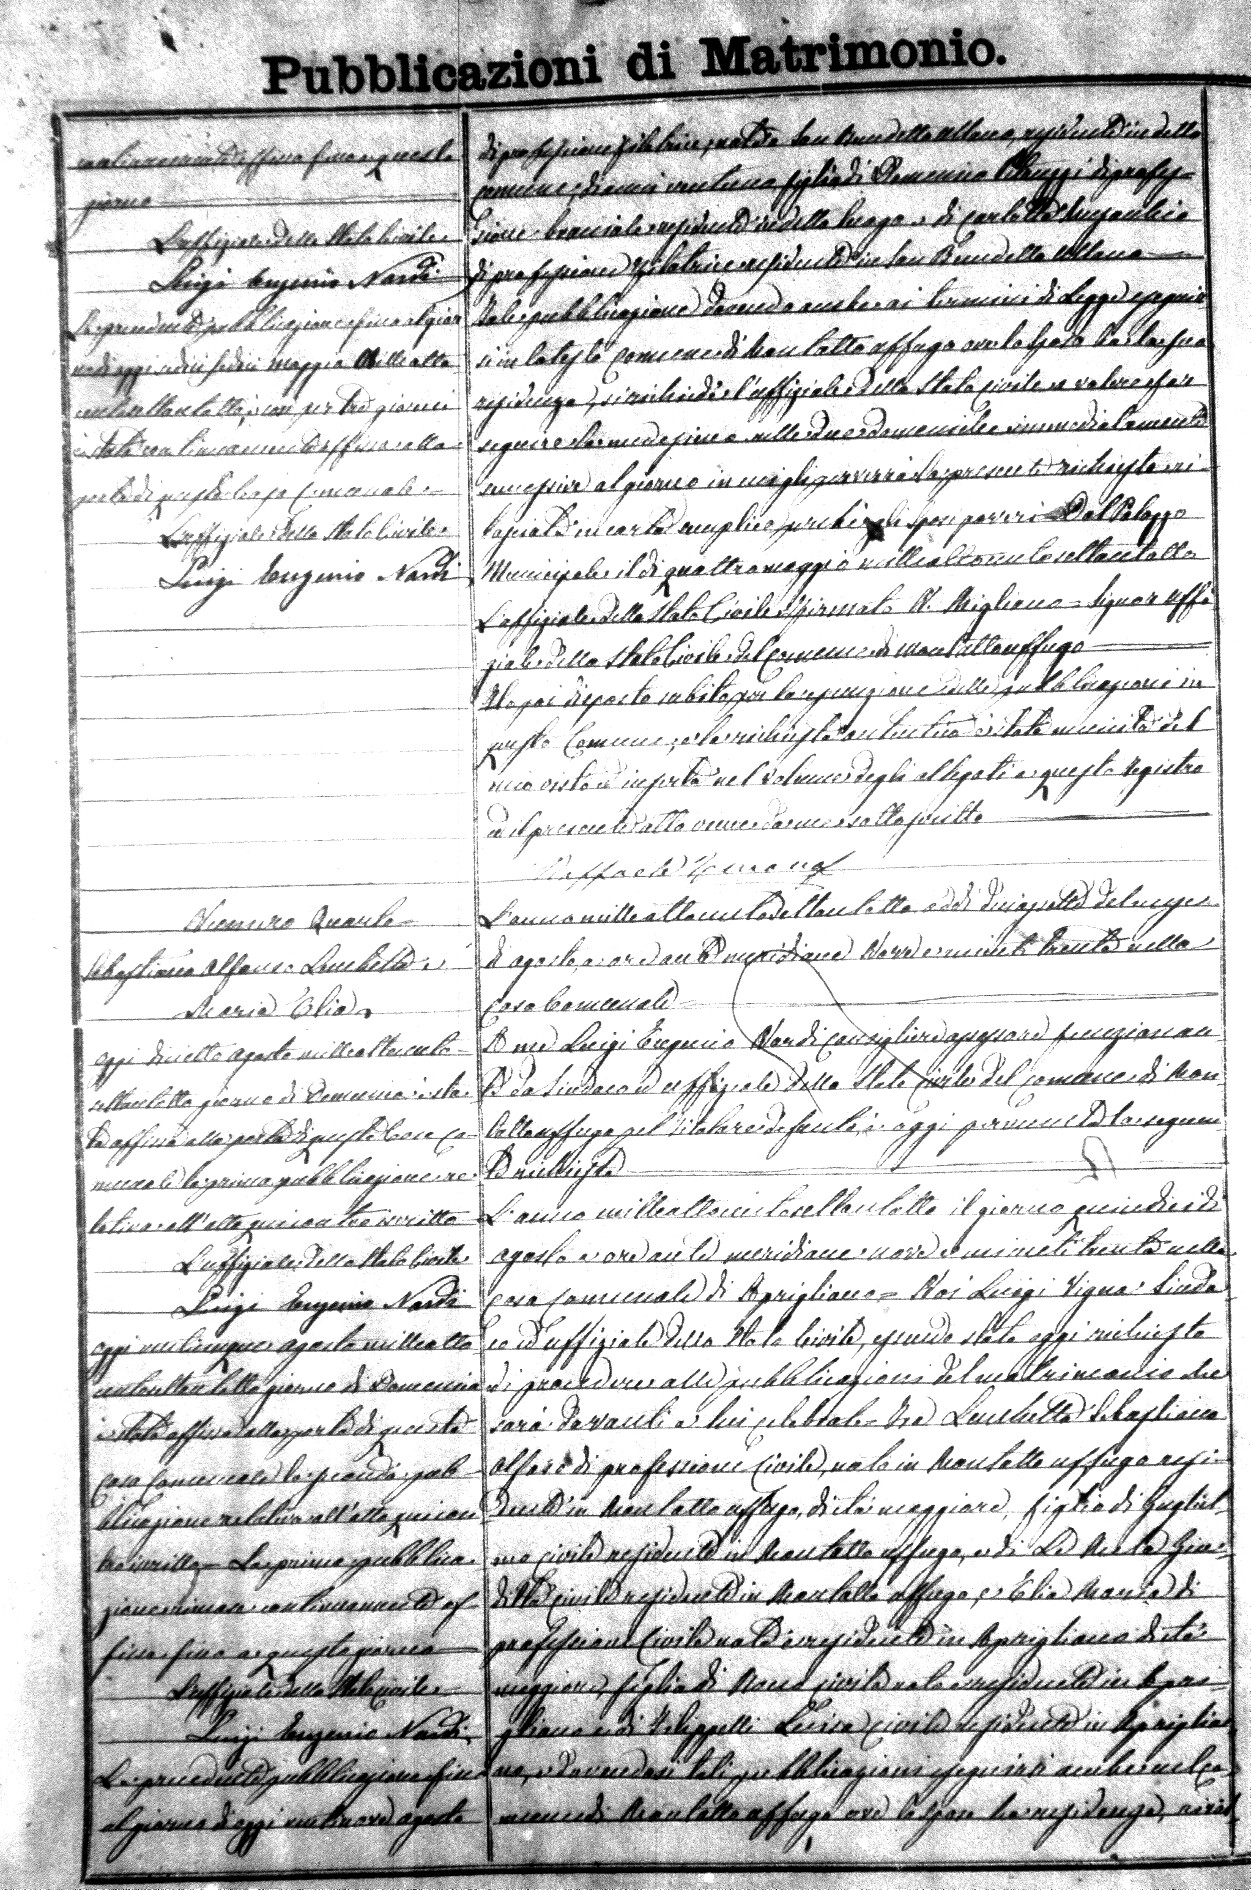 Pubblicazioni di Matrimonio.
continuamente affissa fino a questo
giorno
L'uffiziale dello Stato Civile
Luigi Eugenio Nardi
La precedente pubblicazione fino al gior
no di oggi sedici maggio Mille otto
cento settantotto, e così per tre giorni
è stata continuamente affissa alla
porta di questa Casa Comunale
L'uffiziale dello Stato Civile
Luigi Eugenio Nardi
Numero Quarto
Sebastiano Alfonso Luchetta e
Maria Elia
Oggi diciotto agosto mille ottocento
settantotto giorno di Domenica è sta
ta affissa alla porta di questa Casa Co
munale la prima pubblicazione re
lativa all'atto qui contro iscritto
L'uffiziale dello Stato Civile
Luigi Eugenio Nardi
Oggi venticinque agosto mille otto
cento settantotto giorno di Domenica
è stata affissa alla porta di questa
Casa Comunale la seconda pub
blicazione relativa all'atto qui con
tro iscritto La prima pubblica
zione rimase continuamente af
fissa fino a questo giorno
L'uffiziale dello Stato Civile
Luigi Eugenio Nardi
La precedente pubblicazione fino
al giorno di oggi ventinove agosto
di professione filatrice, nata a San Benedetto Ullano, residente in detto
comune, di anni ventuno figlia di Domenico di profes
sione bracciale residente in detto luogo e di Carlotta
di professione filatrice residente in San Benedetto Ullano
Tale pubblicazione dovendo anche ai termini di Legge eseguir
si in cotesto Comune di Montalto Uffugo ove lo sposo ha la sua
residenza, si richiede l'uffiziale dello Stato Civile a voler far
seguire la medesima nelle due domeniche immediatamente
successive al giorno in cui gli perverrà la presente richiesta ri
lasciata in carta semplice, perchè gli sposi poveri Dal Palazzo
Municipale il dì quattro maggio mille ottocento settantotto
L'uffiziale dello Stato Civile Firmato Migliano Signor Uffi
ziale dello Stato Civile del Comune di Montalto Uffugo
Ho poi disposto subito per la esecuzione delle pubblicazioni in
questo Comune, e la richiesta autentica è stata munita del
mio visto e inserta nel volume degli allegati a questo Registro
ed il presente atto viene da me sottoscritto
Raffaele
L'anno mille ottocento settantotto addì diciassette del mese
di agosto, a ore anti meridiane Nove e minuti trenta nella
Casa Comunale
A me Luigi Eugenio Nardi consigliere assessore funzionan
te da Sindaco ed uffiziale dello Stato Civile del Comune di Mon
talto Uffugo pel titolare defunto, è oggi pervenuta la seguen
te richiesta
L'anno mille ottocento settantotto il giorno quindici di
agosto a ore anti meridiane nove e minuti trenta nella
Casa Comunale di Aprigliano Noi Luigi Vigna Sinda
co ed uffiziale dello Stato Civile, essendo stato oggi richiesto
di procedere alle pubblicazioni del matrimonio che
sarà davanti a lui celebrato Tra Luchetta Sebastiano
Alfonso di professione Civile, nato in Montalto Uffugo resi
dente in Montalto Uffugo, di età maggiore, figlio di Gugliel
mo civile residente in Montalto Uffugo, e di
civile residente in Montalto Uffugo, e Elia Maria di
professione Civile nata e residente in Aprigliano di età
maggiore, figlia di civile nato e residente in Apri
gliano e di civile residente in Apriglia
no, e dovendosi tali pubblicazioni eseguirsi anche nel Co
mune di Montalto Uffugo ove lo sposo ha residenza,